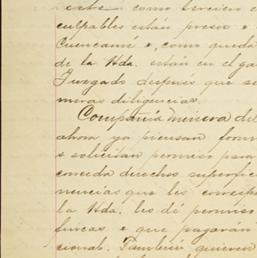 como
culpables están presos e
Cuencamé e, como queda
de la Hda. están en el ga
Juzgado después que se
meras diligencias.
Compañia minera del
ahora ya piensan form
s solicitan permiso para
conceda derechos superfic
nuncias que les corresp
la Hda. les dé permiso
fincas e que pagarán
cional. También quieren